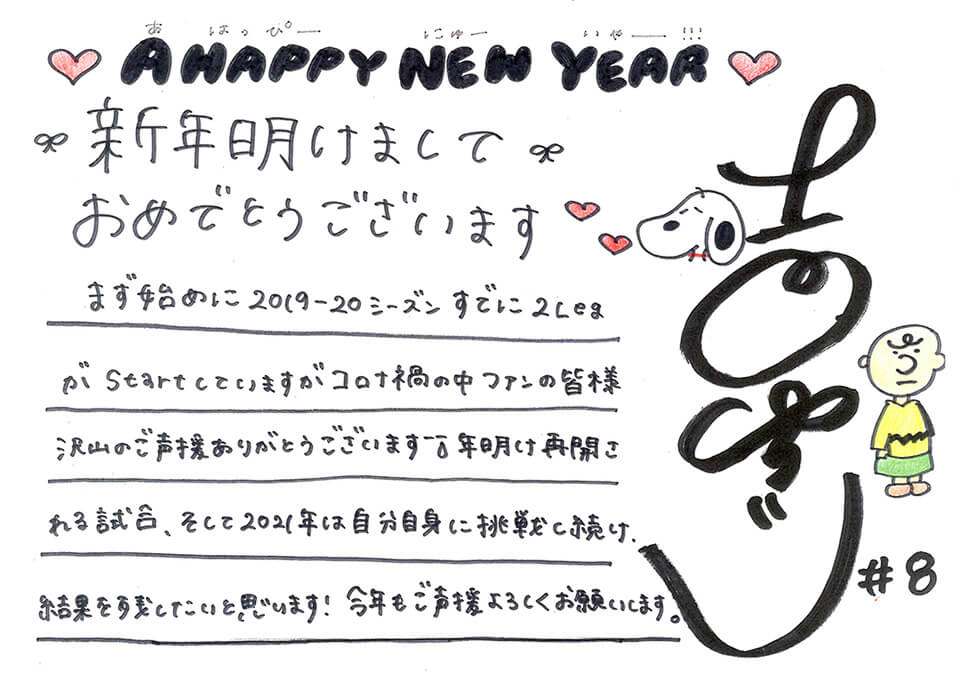 あ はっぴー にゅー いやー!!!
A HAPPY NEW YEAR
新年明けまして
おめでとうございます
まず始めに2019-20シーズンすでに2Leg
がStartしていますがコロナ禍の中ファンの皆様
沢山のご声援ありがとうございます。年明け再開さ
れる試合、そして2021年は自分自身に挑戦し続け、
結果を残したいと思います! 今年もご声援よろしくお願いします。
#8